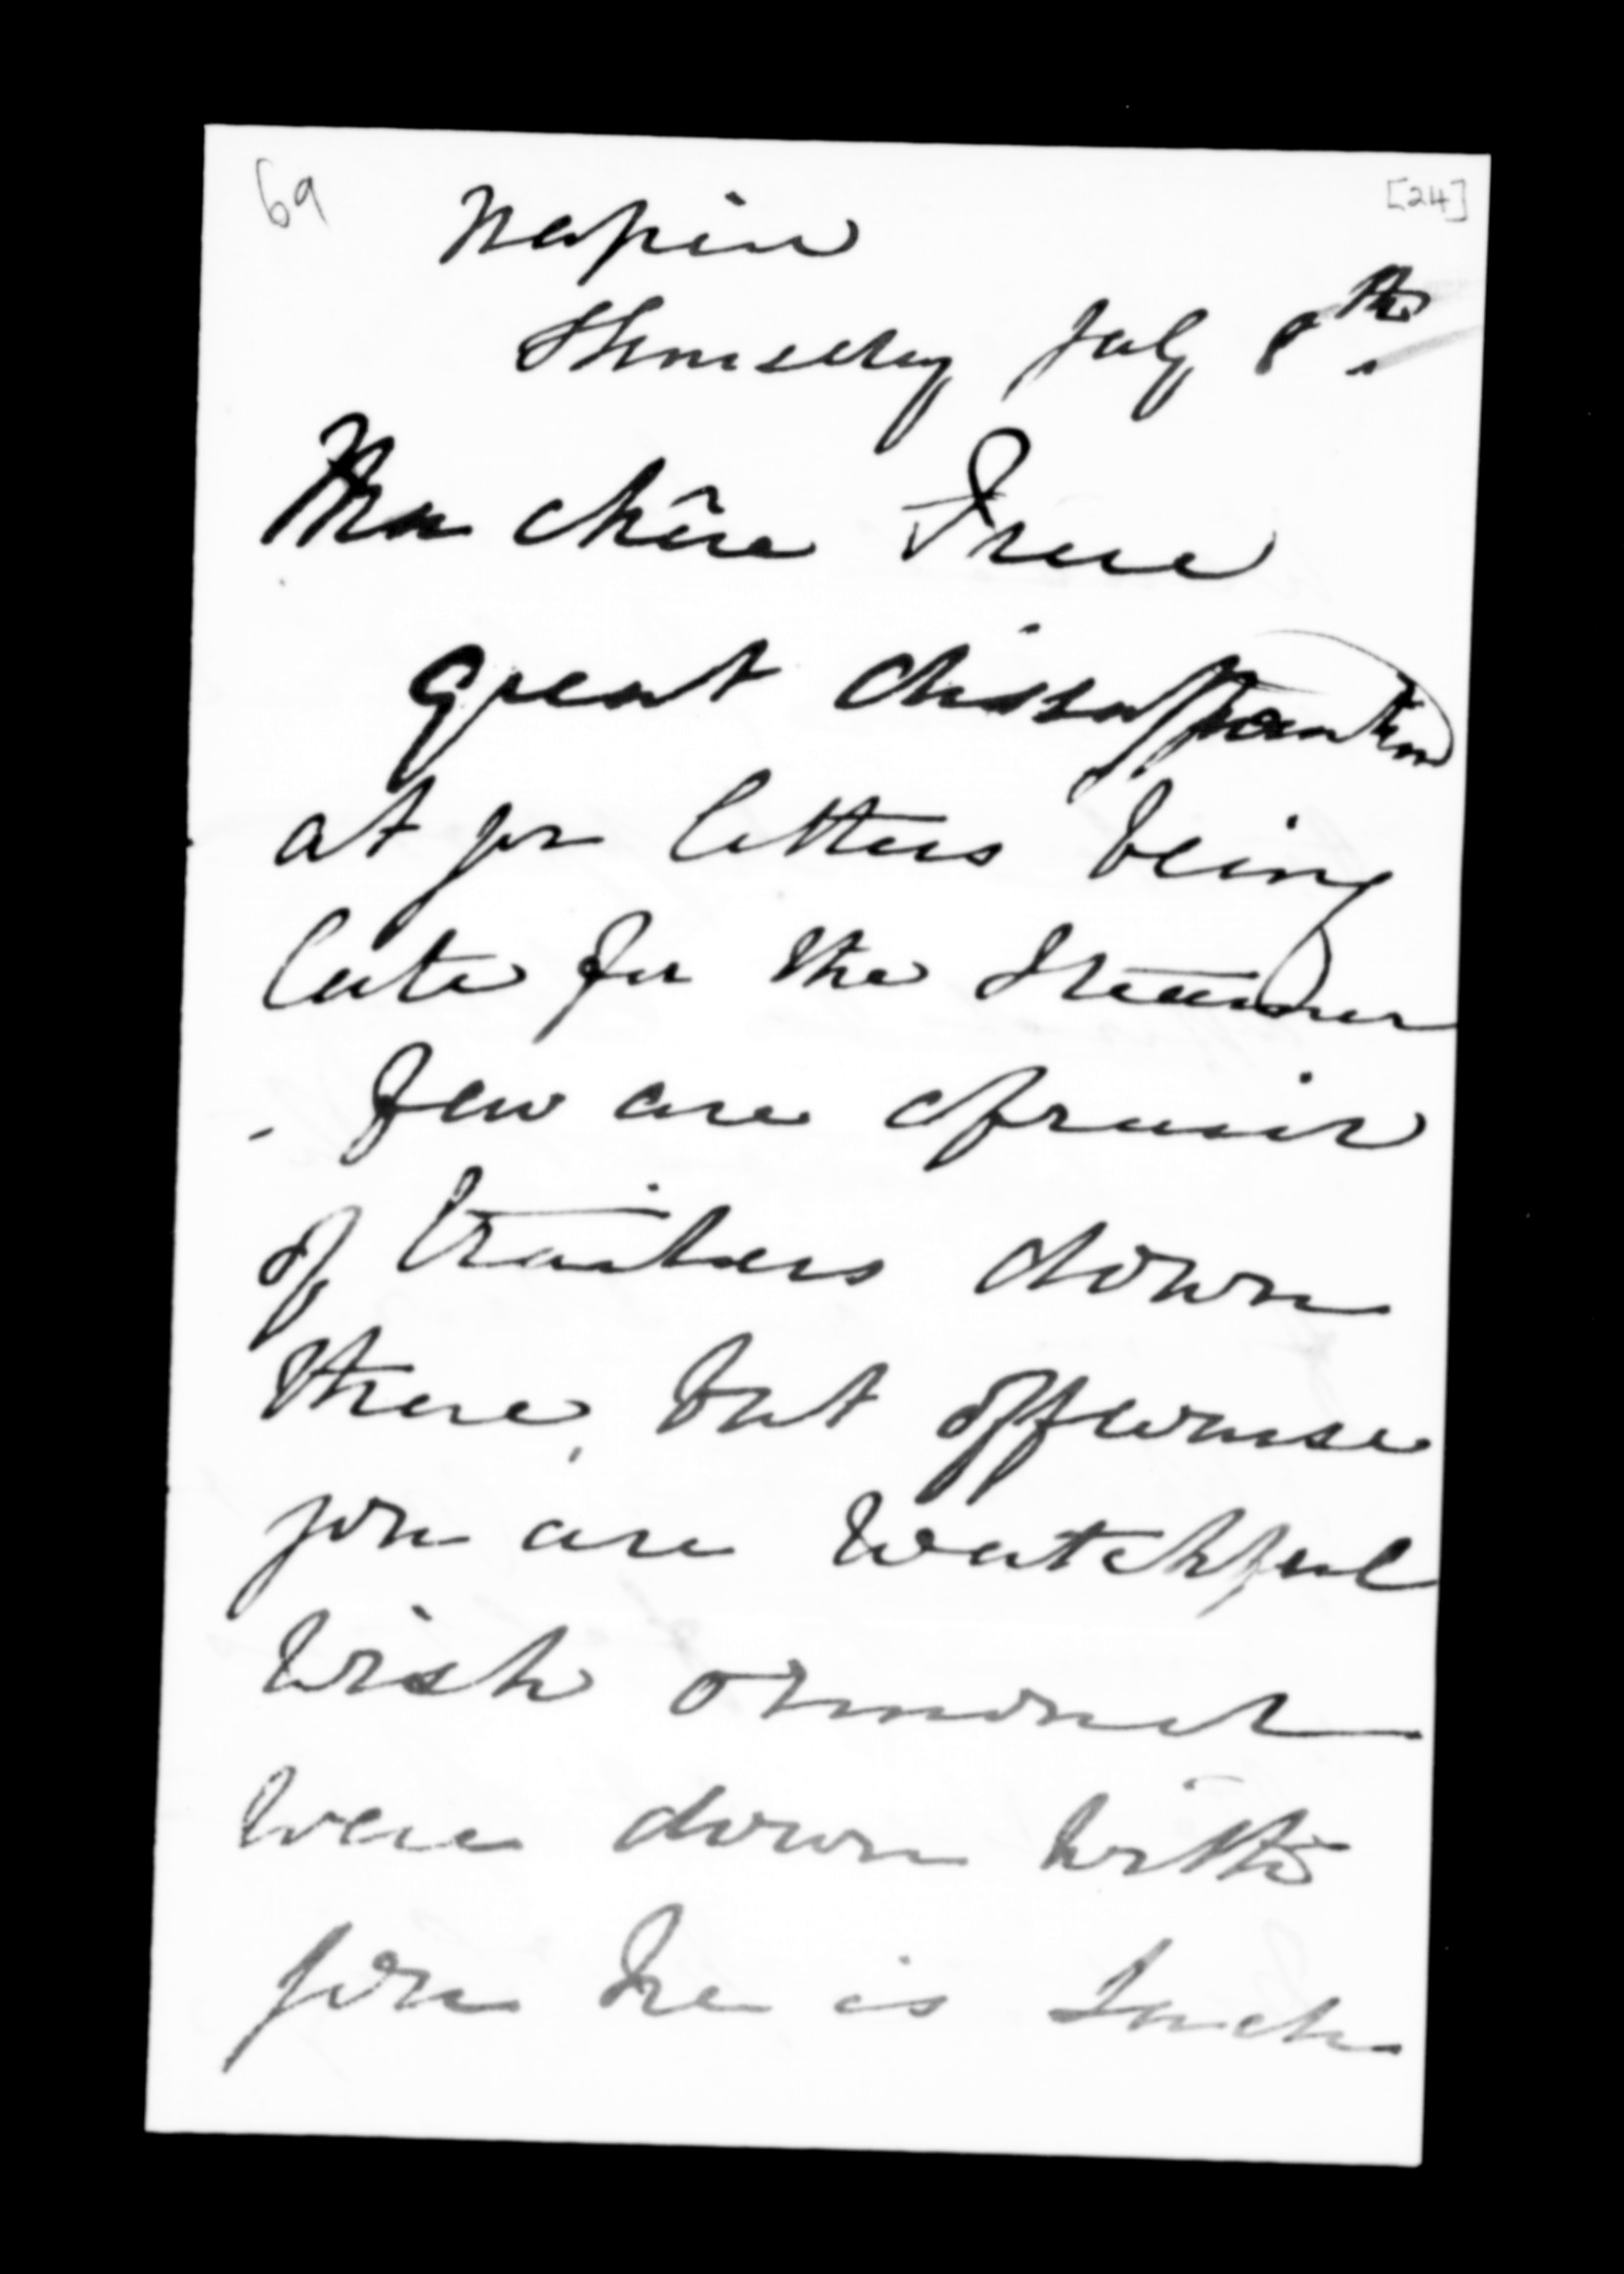 69 [24]
Napier
Thursday July 8th.
Mon chêre Frere
great dissapointm
at yr letters being
late for the Steamer
- few are afraid
of traitors down
there, but of course
you are watchful
wish Ormond
were down with
you he is such